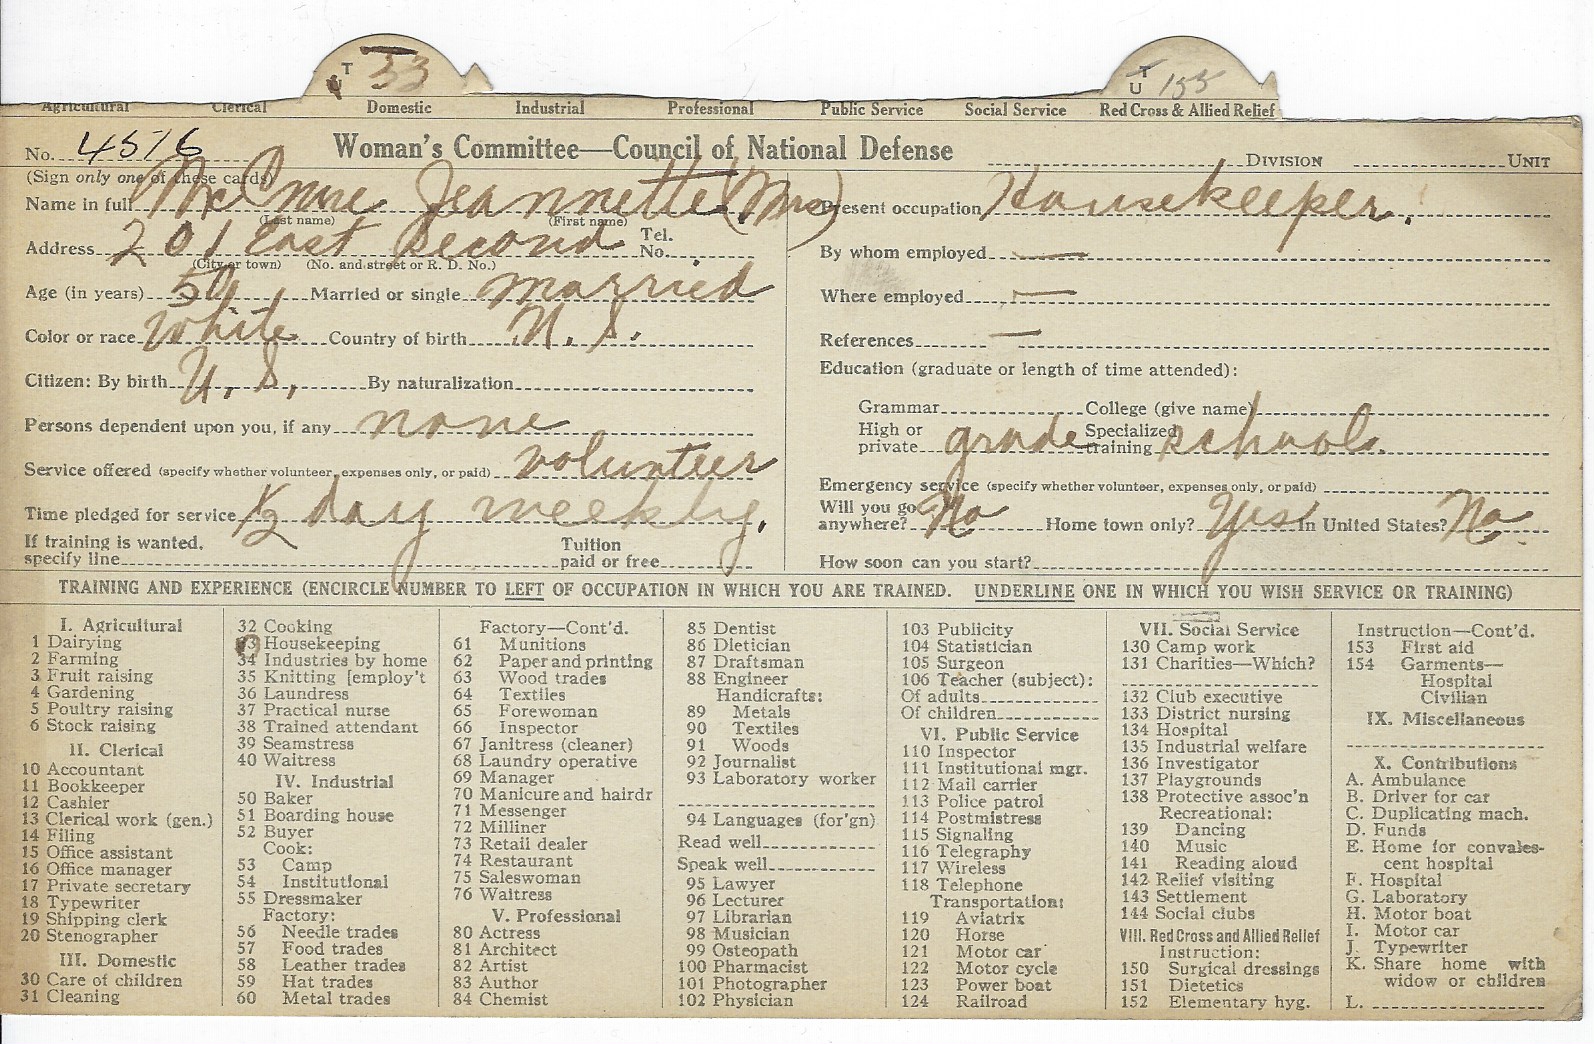 T 33
U
T
U 155
Agricultural Clerical Domestic Industrial Professional Public Service Social Service Red Cross & Allied Relief
No. 4576 Woman's Committee—Council of National Defense DIVISION UNIT
(Sign only one of these cards)
Name in full Jeannette (Mrs)
(Last name) (First name)
Address 201 East Second Tel. No.
(City or town) (No. and street or R. D. No.)
Age (in years) Married or single married
Color or race white Country of birth U. S.
Citizen: By birth U. S. By naturalization
Persons dependent upon you, if any none
Service offered (specify whether volunteer, expenses only, or paid) volunteer
Time pledged for service 1/2 day weekly.
If training is wanted, specify line Tuition paid or free
Present occupation Housekeeper.
By whom employed —
Where employed —
References —
Education (graduate or length of time attended):
Grammar College (give name)
High or private grade Specialized training school.
Emergency service (specify whether volunteer, expenses only, or paid)
Will you go anywhere? No Home town only? Yes In United States? No
How soon can you start?
TRAINING AND EXPERIENCE (ENCIRCLE NUMBER TO LEFT OF OCCUPATION IN WHICH YOU ARE TRAINED. UNDERLINE ONE IN WHICH YOU WISH SERVICE OR TRAINING)
I. Agricultural
1 Dairying
2 Farming
3 Fruit raising
4 Gardening
5 Poultry raising
6 Stock raising
II. Clerical
10 Accountant
11 Bookkeeper
12 Cashier
13 Clerical work (gen.)
14 Filing
15 Office assistant
16 Office manager
17 Private secretary
18 Typewriter
19 Shipping clerk
20 Stenographer
III. Domestic
30 Care of children
31 Cleaning
32 Cooking
33 Housekeeping
34 Industries by home
35 Knitting [employ't
36 Laundress
37 Practical nurse
38 Trained attendant
39 Seamstress
40 Waitress
IV. Industrial
50 Baker
51 Boarding house
52 Buyer
Cook:
53 Camp
54 Institutional
55 Dressmaker
Factory:
56 Needle trades
57 Food trades
58 Leather trades
59 Hat trades
60 Metal trades
Factory—Cont'd.
61 Munitions
62 Paper and printing
63 Wood trades
64 Textiles
65 Forewoman
66 Inspector
67 Janitress (cleaner)
68 Laundry operative
69 Manager
70 Manicure and hairdr
71 Messenger
72 Milliner
73 Retail dealer
74 Restaurant
75 Saleswoman
76 Waitress
V. Professional
80 Actress
81 Architect
82 Artist
83 Author
84 Chemist
85 Dentist
86 Dietician
87 Draftsman
88 Engineer
Handicrafts:
89 Metals
90 Textiles
91 Woods
92 Journalist
93 Laboratory worker
94 Languages (for'gn)
Read well
Speak well
95 Lawyer
96 Lecturer
97 Librarian
98 Musician
99 Osteopath
100 Pharmacist
101 Photographer
102 Physician
103 Publicity
104 Statistician
105 Surgeon
106 Teacher (subject):
Of adults
Of children
VI. Public Service
110 Inspector
111 Institutional mgr.
112 Mail carrier
113 Police patrol
114 Postmistress
115 Signaling
116 Telegraphy
117 Wireless
118 Telephone
Transportation:
119 Aviatrix
120 Horse
121 Motor car
122 Motor cycle
123 Power boat
124 Railroad
VII. Social Service
130 Camp work
131 Charities—Which?
132 Club executive
133 District nursing
134 Hospital
135 Industrial welfare
136 Investigator
137 Playgrounds
138 Protective assoc'n
Recreational:
139 Dancing
140 Music
141 Reading aloud
142 Relief visiting
143 Settlement
144 Social clubs
VIII. Red Cross and Allied Relief
Instruction:
150 Surgical dressings
151 Dietetics
152 Elementary hyg.
Instruction—Cont'd.
153 First aid
154 Garments—
Hospital
Civilian
IX. Miscellaneous
X. Contributions
A. Ambulance
B. Driver for car
C. Duplicating mach.
D. Funds
E. Home for convales-
cent hospital
F. Hospital
G. Laboratory
H. Motor boat
I. Motor car
J. Typewriter
K. Share home with
widow or children
L.